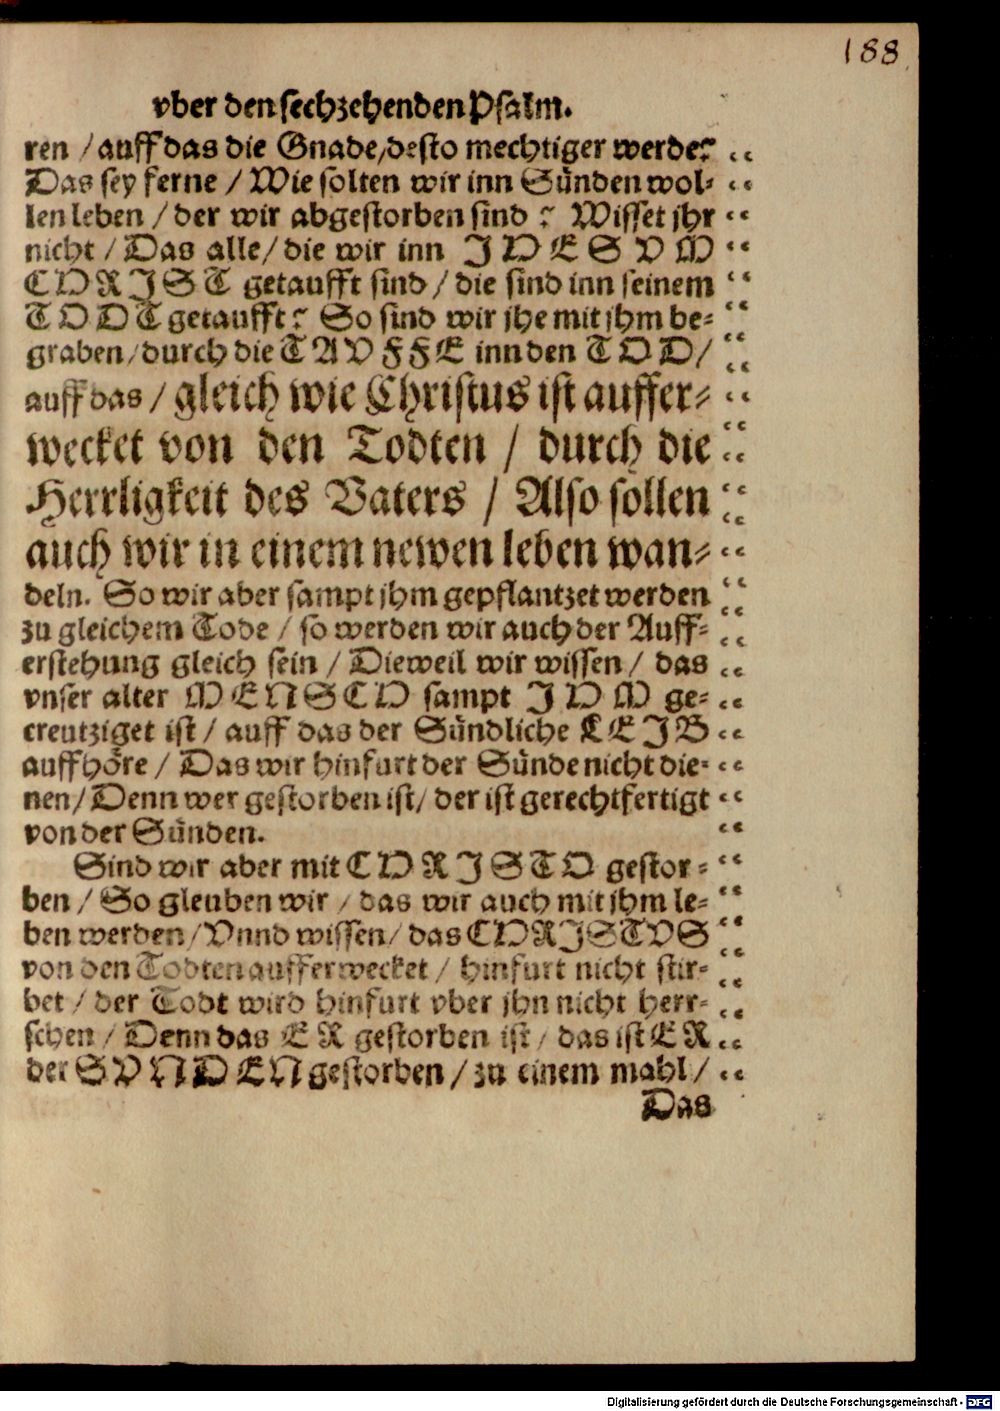 188
vber den sechzehenden Psalm.
ren / auff das die Gnade/desto mechtiger werde?
Das sey ferne / Wie solten wir inn Sünden wol⸗
len leben / der wir abgestorben sind ? Wisset jhr
nicht / Das alle/ die wir inn JHESVM
CHRIST getaufft sind / die sind inn seinem
TODT getaufft? So sind wir jhe mit jhm be⸗
graben/durch die TAVFFE inn den TOD/
auff das / gleich wie Christus ist auffer⸗
wecket von den Todten / durch die
Herrligkeit des Vaters / Also sollen
auch wir in einem newen leben wan⸗
deln. So wir aber sampt jhm gepflantzet werden
zu gleichem Tode / so werden wir auch der Auff⸗
erstehung gleich sein / Dieweil wir wissen / das
vnser alter MENSCH sampt JHM ge⸗
creutziget ist / auff das der Sündliche LEJB
auffhöre / Das wir hinfurt der Sünde nicht die⸗
nen/ Denn wer gestorben ist/ der ist gerechtfertigt
von der Sünden.
Sind wir aber mit CHRJSTO gestor⸗
ben / So gleuben wir / das wir auch mit jhm le⸗
ben werden/Vnnd wissen/ das CHRJSTVS
von den Todten aufferwecket / hinfurt nicht stir⸗
bet / der Todt wird hinfurt vber jhn nicht herr⸗
schen / Denn das ER gestorben ist / das ist ER
der SVNDEN gestorben / zu einem mahl /
Das
Digitalisierung gefördert durch die Deutsche Forschungsgemeinschaft - DFG